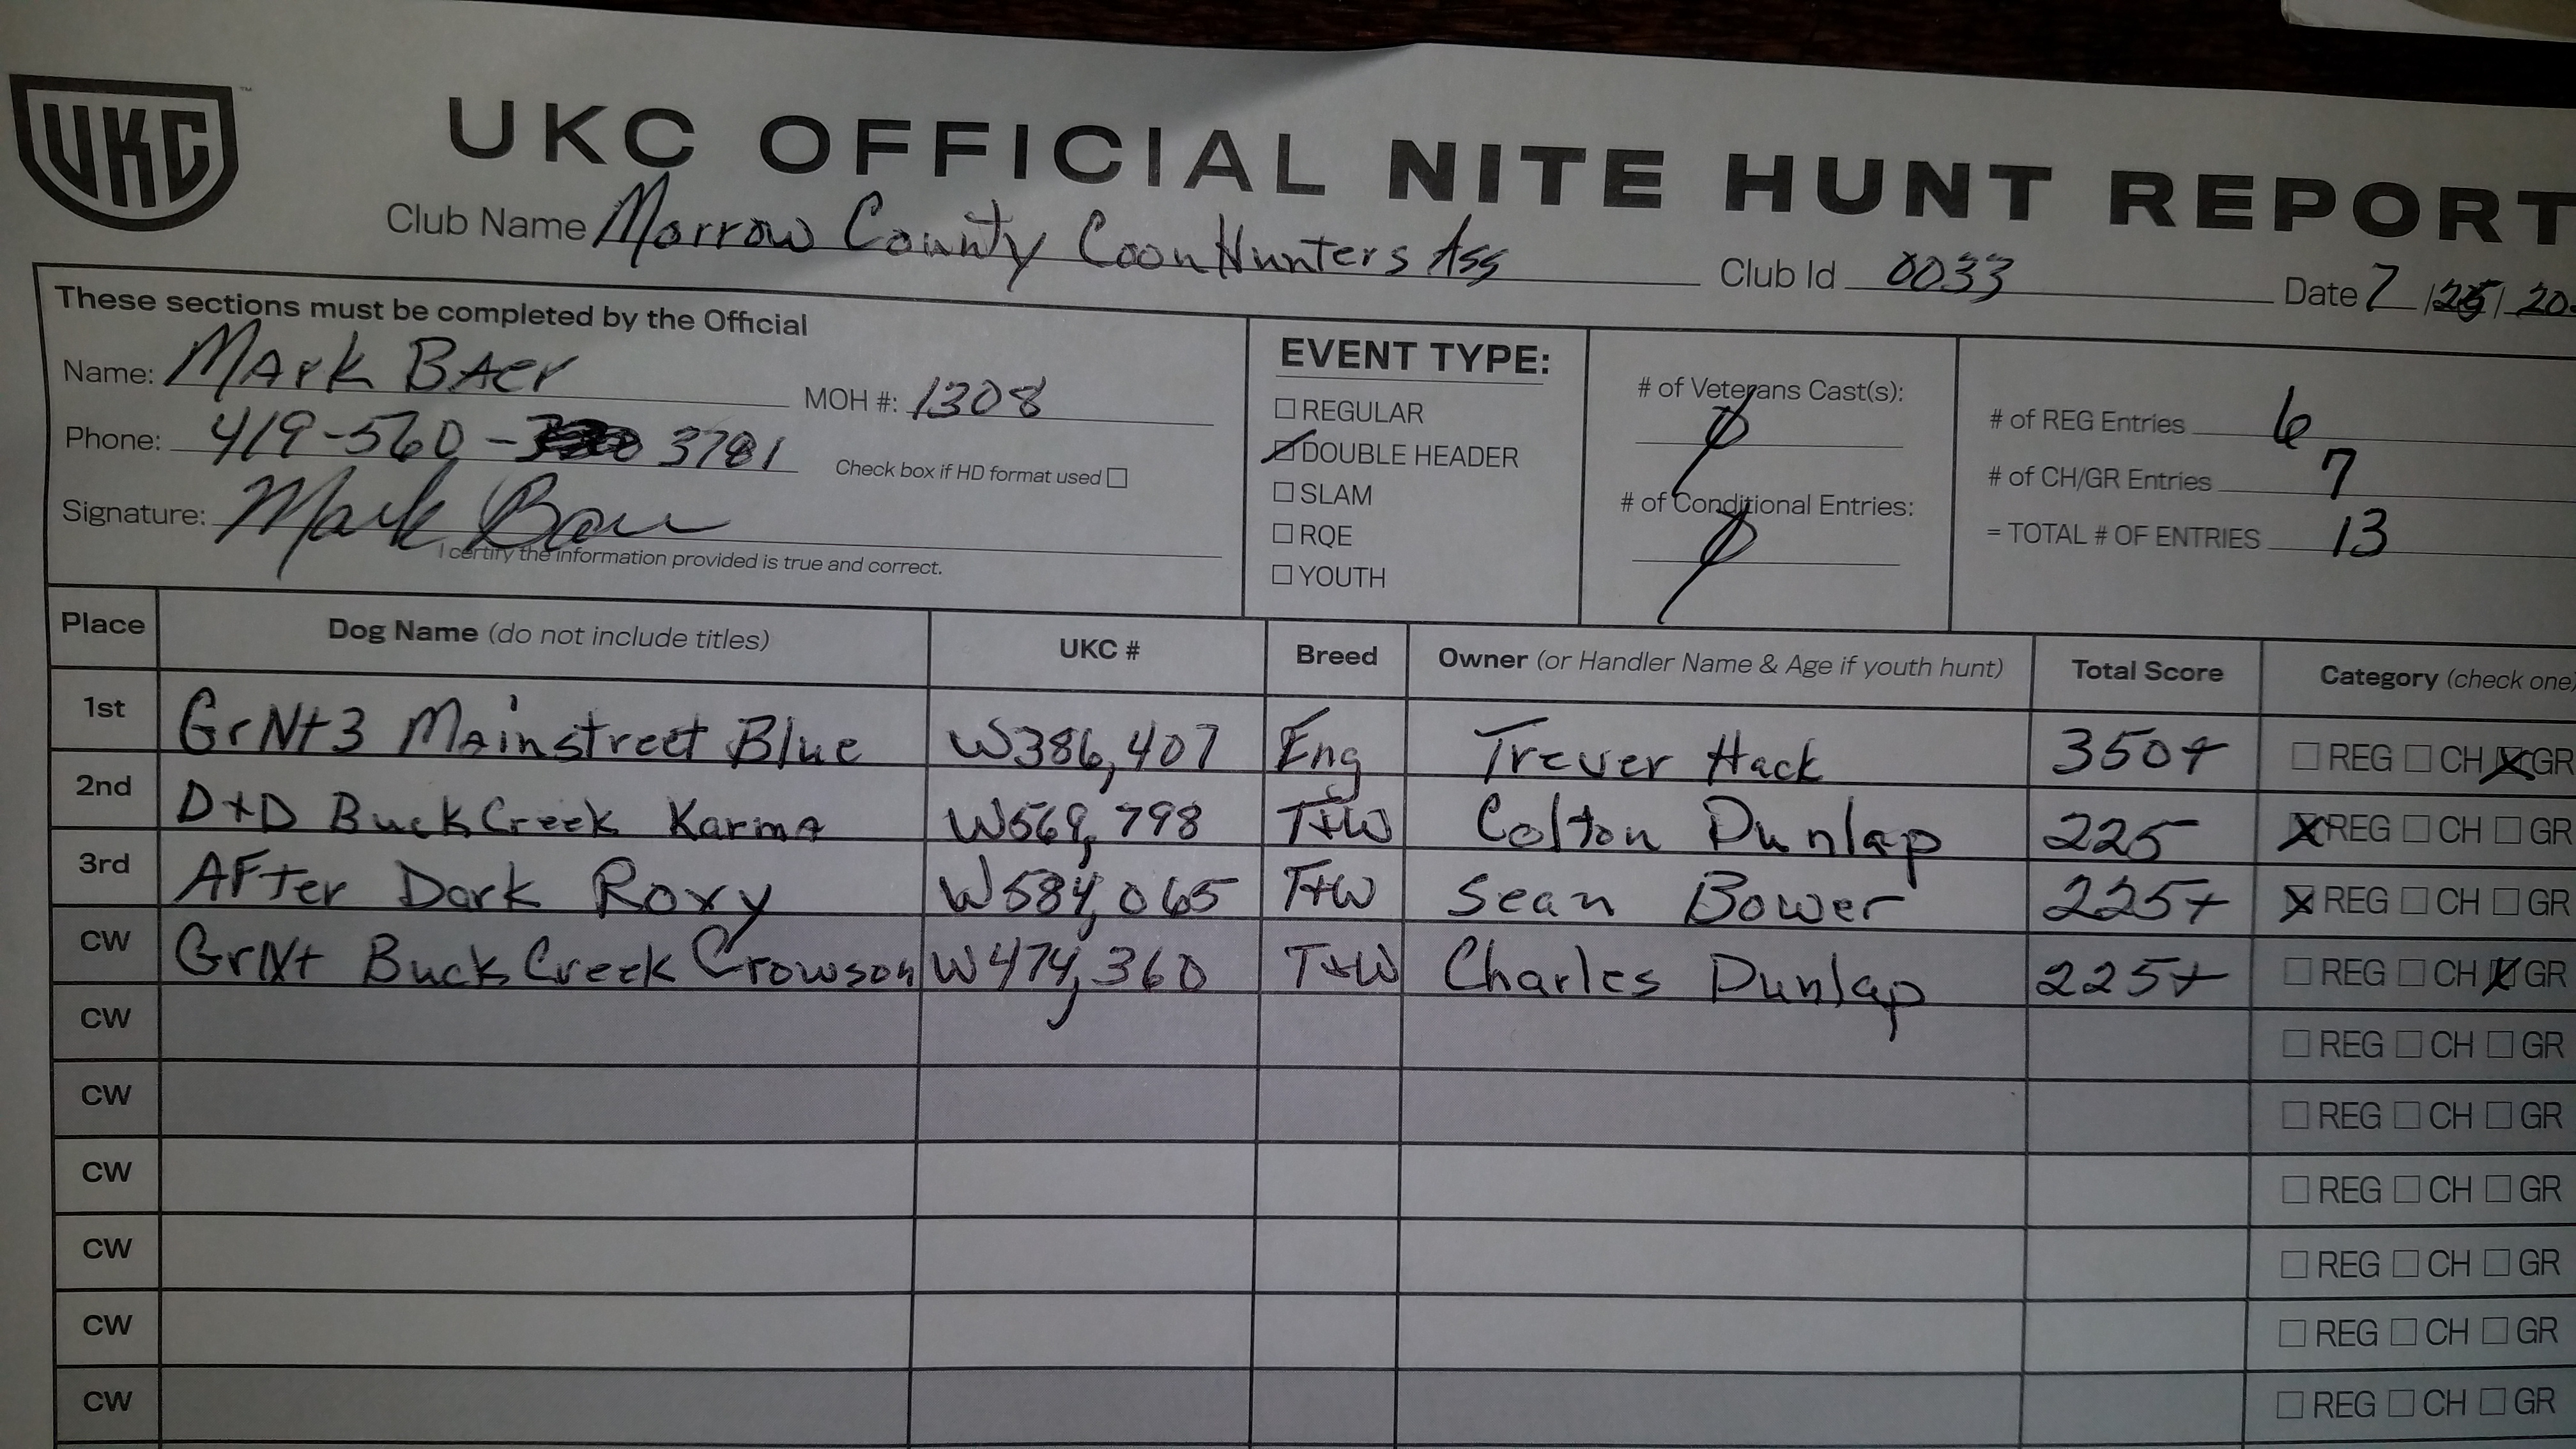 UKC ™
UKC OFFICIAL NITE HUNT REPORT
Club Name Morrow County CoonHunters Ass Club Id 0033 Date 7 / / 20
These sections must be completed by the Official
Name: MArk BAer MOH #: 1308
Phone: 419-560- 3781 Check box if HD format used ☐
Signature: Mark Baer
I certify the information provided is true and correct.
EVENT TYPE:
☐ REGULAR
☑ DOUBLE HEADER
☐ SLAM
☐ RQE
☐ YOUTH
# of Veterans Cast(s): ∅
# of Conditional Entries: ∅
# of REG Entries 6
# of CH/GR Entries 7
= TOTAL # OF ENTRIES 13
Place Dog Name (do not include titles) UKC # Breed Owner (or Handler Name & Age if youth hunt) Total Score Category (check one)
1st GrNt3 Mainstreet Blue W386,407 Eng Trever Hack 350+ ☐ REG ☐ CH ☒ GR
2nd D+D BuckCreek Karma W569,798 T+W Colton Dunlap 225 ☒ REG ☐ CH ☐ GR
3rd AFter Dark Roxy W584,065 T+W Sean Bower 225+ ☒ REG ☐ CH ☐ GR
CW GrNt Buck Creek Crowson W474,360 T+W Charles Dunlap 225+ ☐ REG ☐ CH ☒ GR
CW ☐ REG ☐ CH ☐ GR
CW ☐ REG ☐ CH ☐ GR
CW ☐ REG ☐ CH ☐ GR
CW ☐ REG ☐ CH ☐ GR
CW ☐ REG ☐ CH ☐ GR
CW ☐ REG ☐ CH ☐ GR